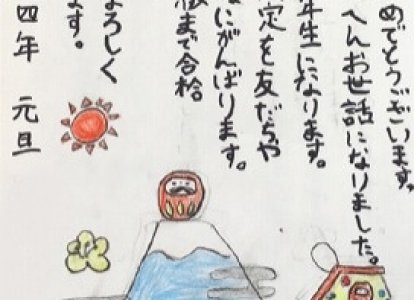 めでとうございます
へんお世話になりました。
年生になります。
定を友だちや
にがんばります。
まで合格
ろしく
ます。
四年 元旦